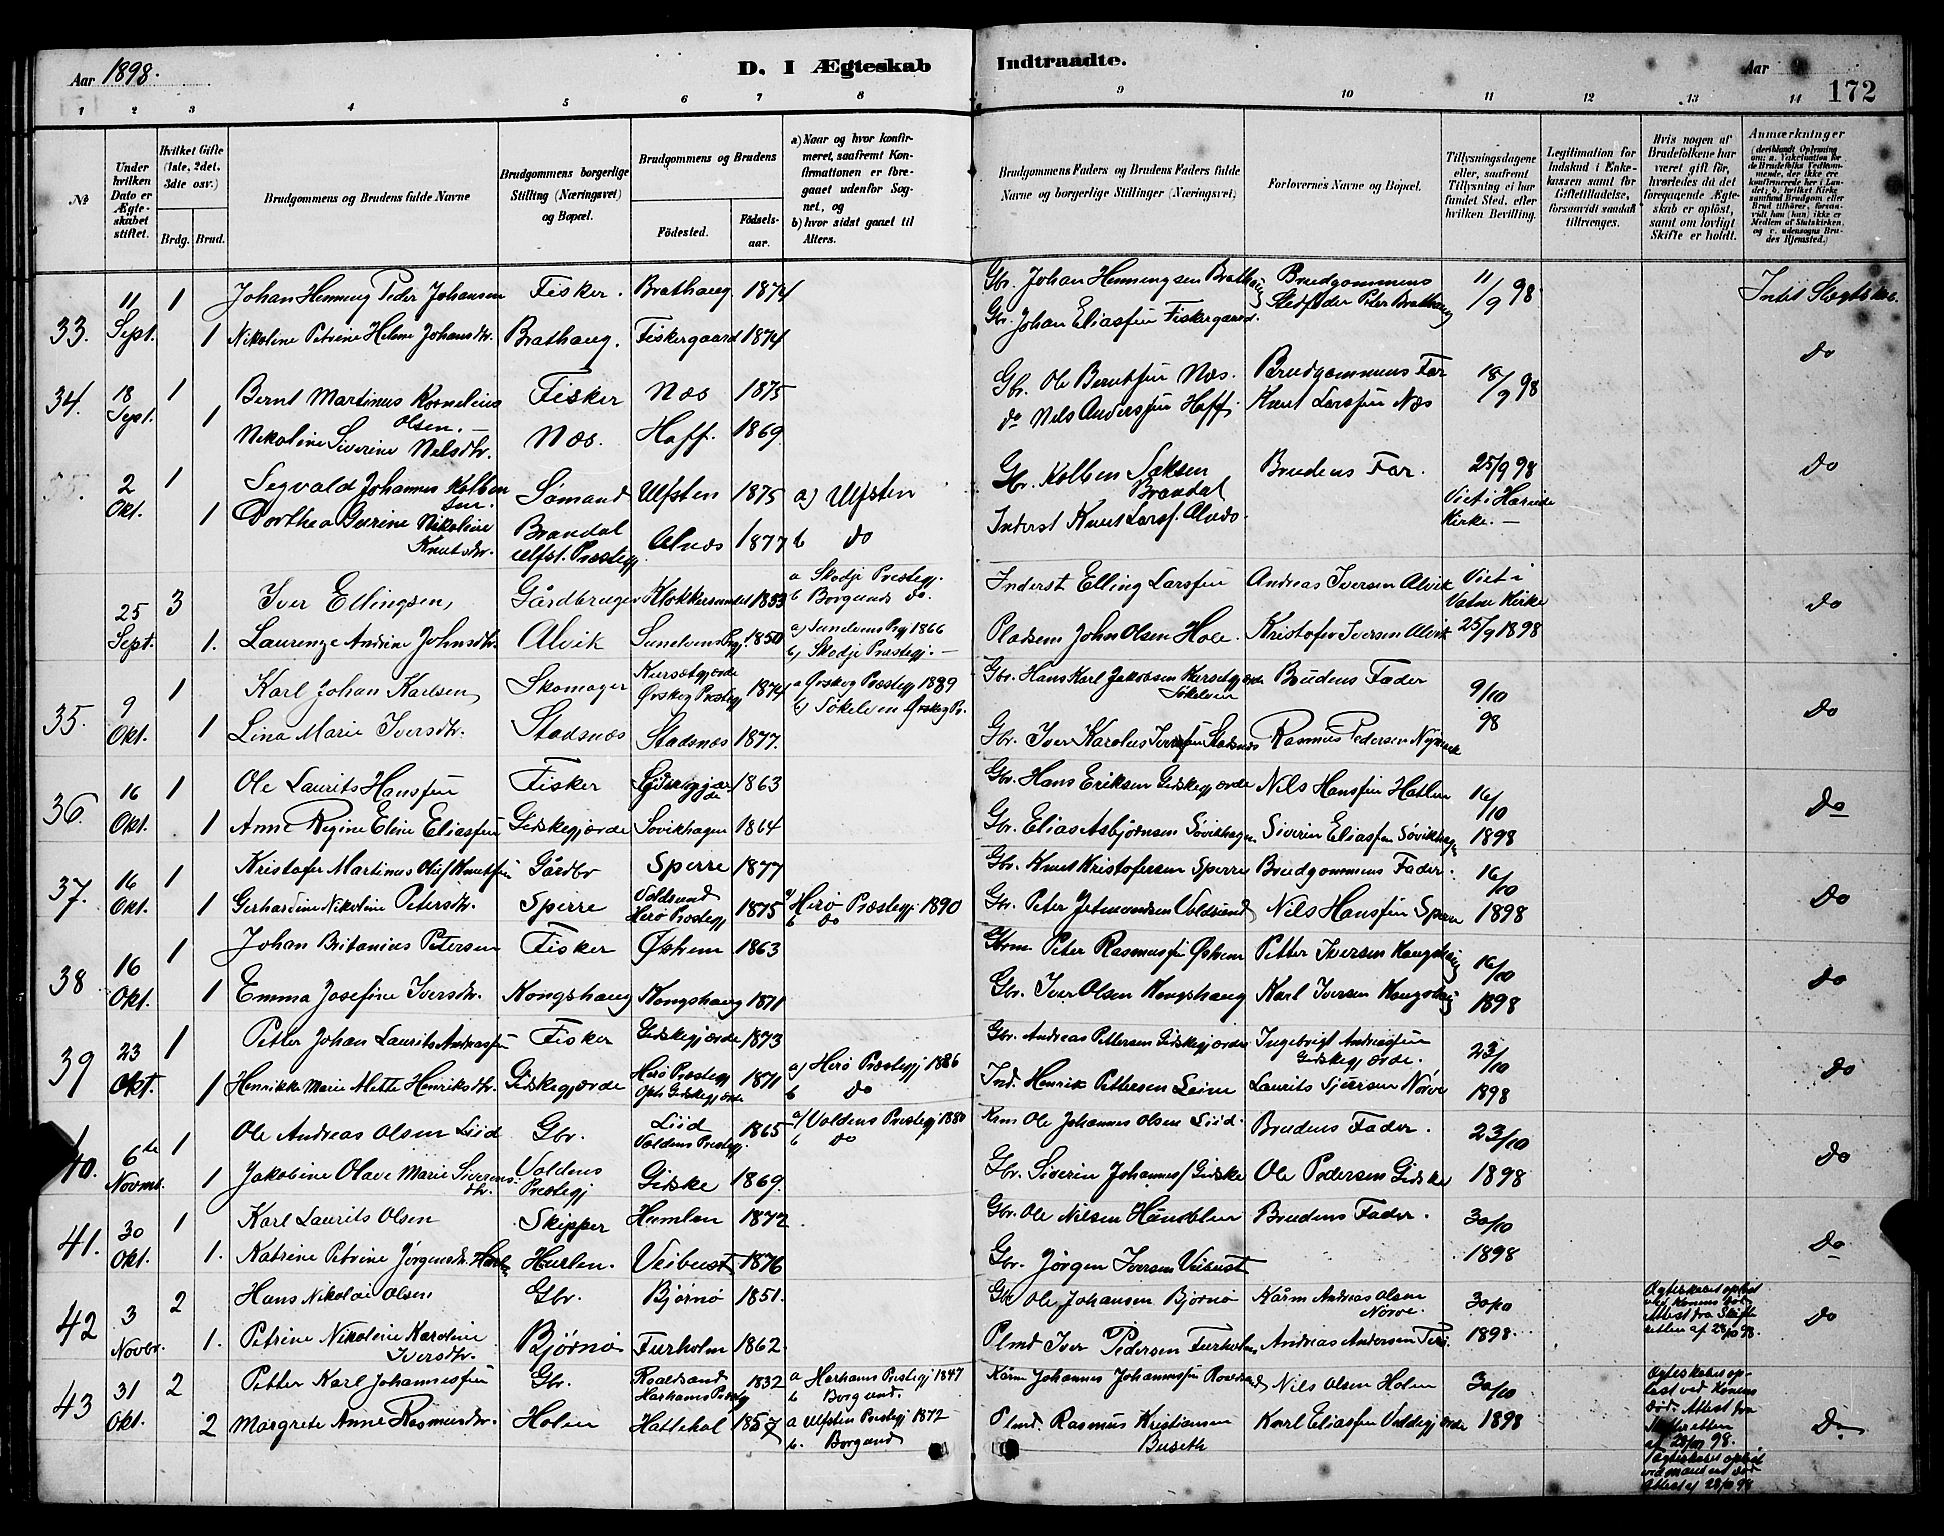 Aar 1898.
D. I Ægteskab Indtraadte.
Aar
172
1 2 3 4 5 6 7 8 9 10 11 12 13 14
№
Under hvilken Dato er Ægteskabet stiftet.
Hvilket Gifte (1ste, 2det. 3die osv.)
Brdg. Brud.
Brudgommens og Brudens fulde Navne
Brudgommens borgerlige Stilling (Næringsvei) og Bopæl.
Brudgommens og Brudens
Fødested.
Fødselsaar.
a) Naar og hvor konfirmeret, saafremt Konfirmationen er foregaaet udenfor Sognet, og
b) hvor sidst gaaet til Alters.
Brudgommens Faders og Brudens Faders fulde Navne og borgerlige Stillinger (Næringsvei)
Forlovernes Navne og Bopæl.
Tillysningsdagene eller, saafremt Tillysning ei har fundet Sted. efter hvilken Bevilling.
Legitimation for Indskud i Enkekassen samt for Giftetilladelse, forsaavidt saadan tiltrænges.
Hvis nogen af Brudefolkene har været gift før, hvorledes da det foregaaende Ægteskab er opløst, samt om lovligt Skifte er holdt.
Anmærkninger
33. 11 Sept. 1 Johan Henning Peder Johansen Fisker. Brathaug. 1874 Gbr. Johan Henningsen Brathaug Brudgommens Stedfader Peter Brathaug 11/9 98
1 Nikoline Petrine Helene Johansdtr. Brathaug. Fiskergaard 1874 Gbr. Johan Eliassen Fiskergaard. do
34. 18 Sept. 1 Bernt Martinus Kornelius Olsen. Fisker Næs 1875 Gbr. Ole Berntsen Næs. Brudgommens Far 18/9 98
1 Nikoline Siverine Nilsdtr. Næs. Hoff. 1869 do Nils Anderssen Hoff Knut Larssen Næs
2 Okt. 1 Segvald Johannes Kolbensen Sømand Ulfsten 1875 a) Ulfsten Gbr. Kolben Saksen Brandal Brudens Far. 25/9 98 do
1 Dorthea Guerine Nikoline Knutsdtr. Brandal Ulfst. Præstegj. Alnæs 1877 b do Inderst Knut Larss. Alnæs. Viet i Hareide Kirke.
25 Sept. 3 Iver Ellingsen, Gårdbruger Klokkersundet 1853 a Skodje Prestegj. b Borgunds do. Inderst Elling Larssen Andreas Iversen Alvik Viet i Vatne Kirke do
1. Laurenze Andrine Johnsdtr. Alvik Sunelvens Prgj. 1850 a) Sunelvens Prgj 1866 b) Skodje Præstegj. Pladsem John Olsen Hole. Kristofer Iversen Alvik 25/9 1898
35. 9 Okt. 1 Karl Johan Karlsen, Skomager Kursetgjerde Ørskog Præstegj 1874 a Ørskog Præstegj 1889 b) Søkelven Ørskog Pr. Gbr. Hans Karl Jakobsen Kursetgjerde Søkelven Brudens Fader 9/10 98 do
1 Lina Marie Iversdtr. Stadsnæs Stadsnæs 1877. Gbr. Iver Karolus Iverssen Stadsnæs Rasmus Pedersen
36. 16 Okt. 1 Ole Laurits Hanssen Fisker Gidskegjærde 1863 Gbr. Hans Eriksen Gidskegjerde Nils Hanssen Hatlen 16/10 do
1 Anne Regine Eline Eliassen Gidskegjerde Søvikhagen 1864 Gbr. Elias Asbjørnsen Søvikhagen Siverin Eliassen Søvikhagen 1898
37. 16 Okt. 1 Kristofer Martinus Oluf Knutsen Gårdbr Sperre 1877 Gbr. Knut Kristofersen Sperre Brudgommens Fader. 16/10 do
1 Gerhardine Nikoline Petersdtr. Sperre Voldsund Herø Præstegj 1875 a Herø Præstegj 1890 b do Gbr. Peter Jetmondsen Voldsund Nils Hanssen Sperre 1898
38 16 Okt. 1 Johan Britanius Petersen Fisker Øshem 1863 Gbrm Peter Rasmussen Øshem Petter Iversen Kongshaug 16/10 do
1 Emma Josefine Iversdtr. Kongshaug Kongshaug 1871 Gbr. Iver Olsen Kongshaug Karl Iversen Kongshaug 1898
39 23 Okt. 1 Petter Johan Laurits Andreassen Fisker Gidskegjerde 1873 Gbr. Andreas Pettersen Gidskegjerde Ingebrigt Andreassen Gidskegjerde. 23/10 do
1 Henrikke Marie Mette Henriksdtr. Gidskegjerde Herø Præstegj Oph. Gidskegjerde 1871 a) Herø Præstegj 1886 b do Ind. Henrik Pettersen Leine Laurits Sjursen Nørve 1898
40. 6te Novmb. 1 Ole Andreas Olsen Liid Gbr. Liid Voldens Prestegj. 1865 a) Voldens Prestegj 1880 b do Ole Johannes Olsen Liid. Brudens Fader. 23/10 do
1 Jakobine Olave Marie Siverinsdtr. Voldens Prestegj Gidske 1869. Gbr. Siverin Johannes/ Gidske Ole Pedersen Gidske 1898
41. 30 Okt. 1 Karl Laurits Olsen Skipper Humlen 1872 Gbr. Ole Nilsen Brudens Fader. 30/10 do
1. Katrine Petrine Jørgensdtr. Veibust 1876 Gbr. Jørgen Iversen Veibust 1898
42 3 Novbr. 2 Hans Nikolai Olsen Gbr. Bjørnø 1851. Gbr Ole Johansen Bjørnø Kårm Andreas Olsen Nørve. 30/10 Ægteskabet opløst ved Konens død. Attest fra Skifteretten af 28/10 98. do
1. Petrine Nikoline Karoline Iversdtr. Bjørnø Furholm 1862. Plmd Iver Pedersen Furholm Andreas Andersen 1898.
43 31 Okt. 2 Petter Karl Johannessen Gbr. Roaldsand Harhams Prestgj 1832 a Harhams Prestegj 1847 b Borgund. Kårm Johannes Johannessen Roaldsand Nils Olsen Holen 30/10 Ægteskabet opløst ved Konens død. Attest fra Skifteretten af 28/10 98. do
2 Margrete Anne Rasmusdtr. Holen Hattehol 1857 a Ulfsten Prestegj 1872 b. Borgund Plmd. Rasmus Kristiansen Buseth Karl Eliassen Valdegjerde 1898 Ægteskabet opløst ved mandens død Attest af 28/10 98